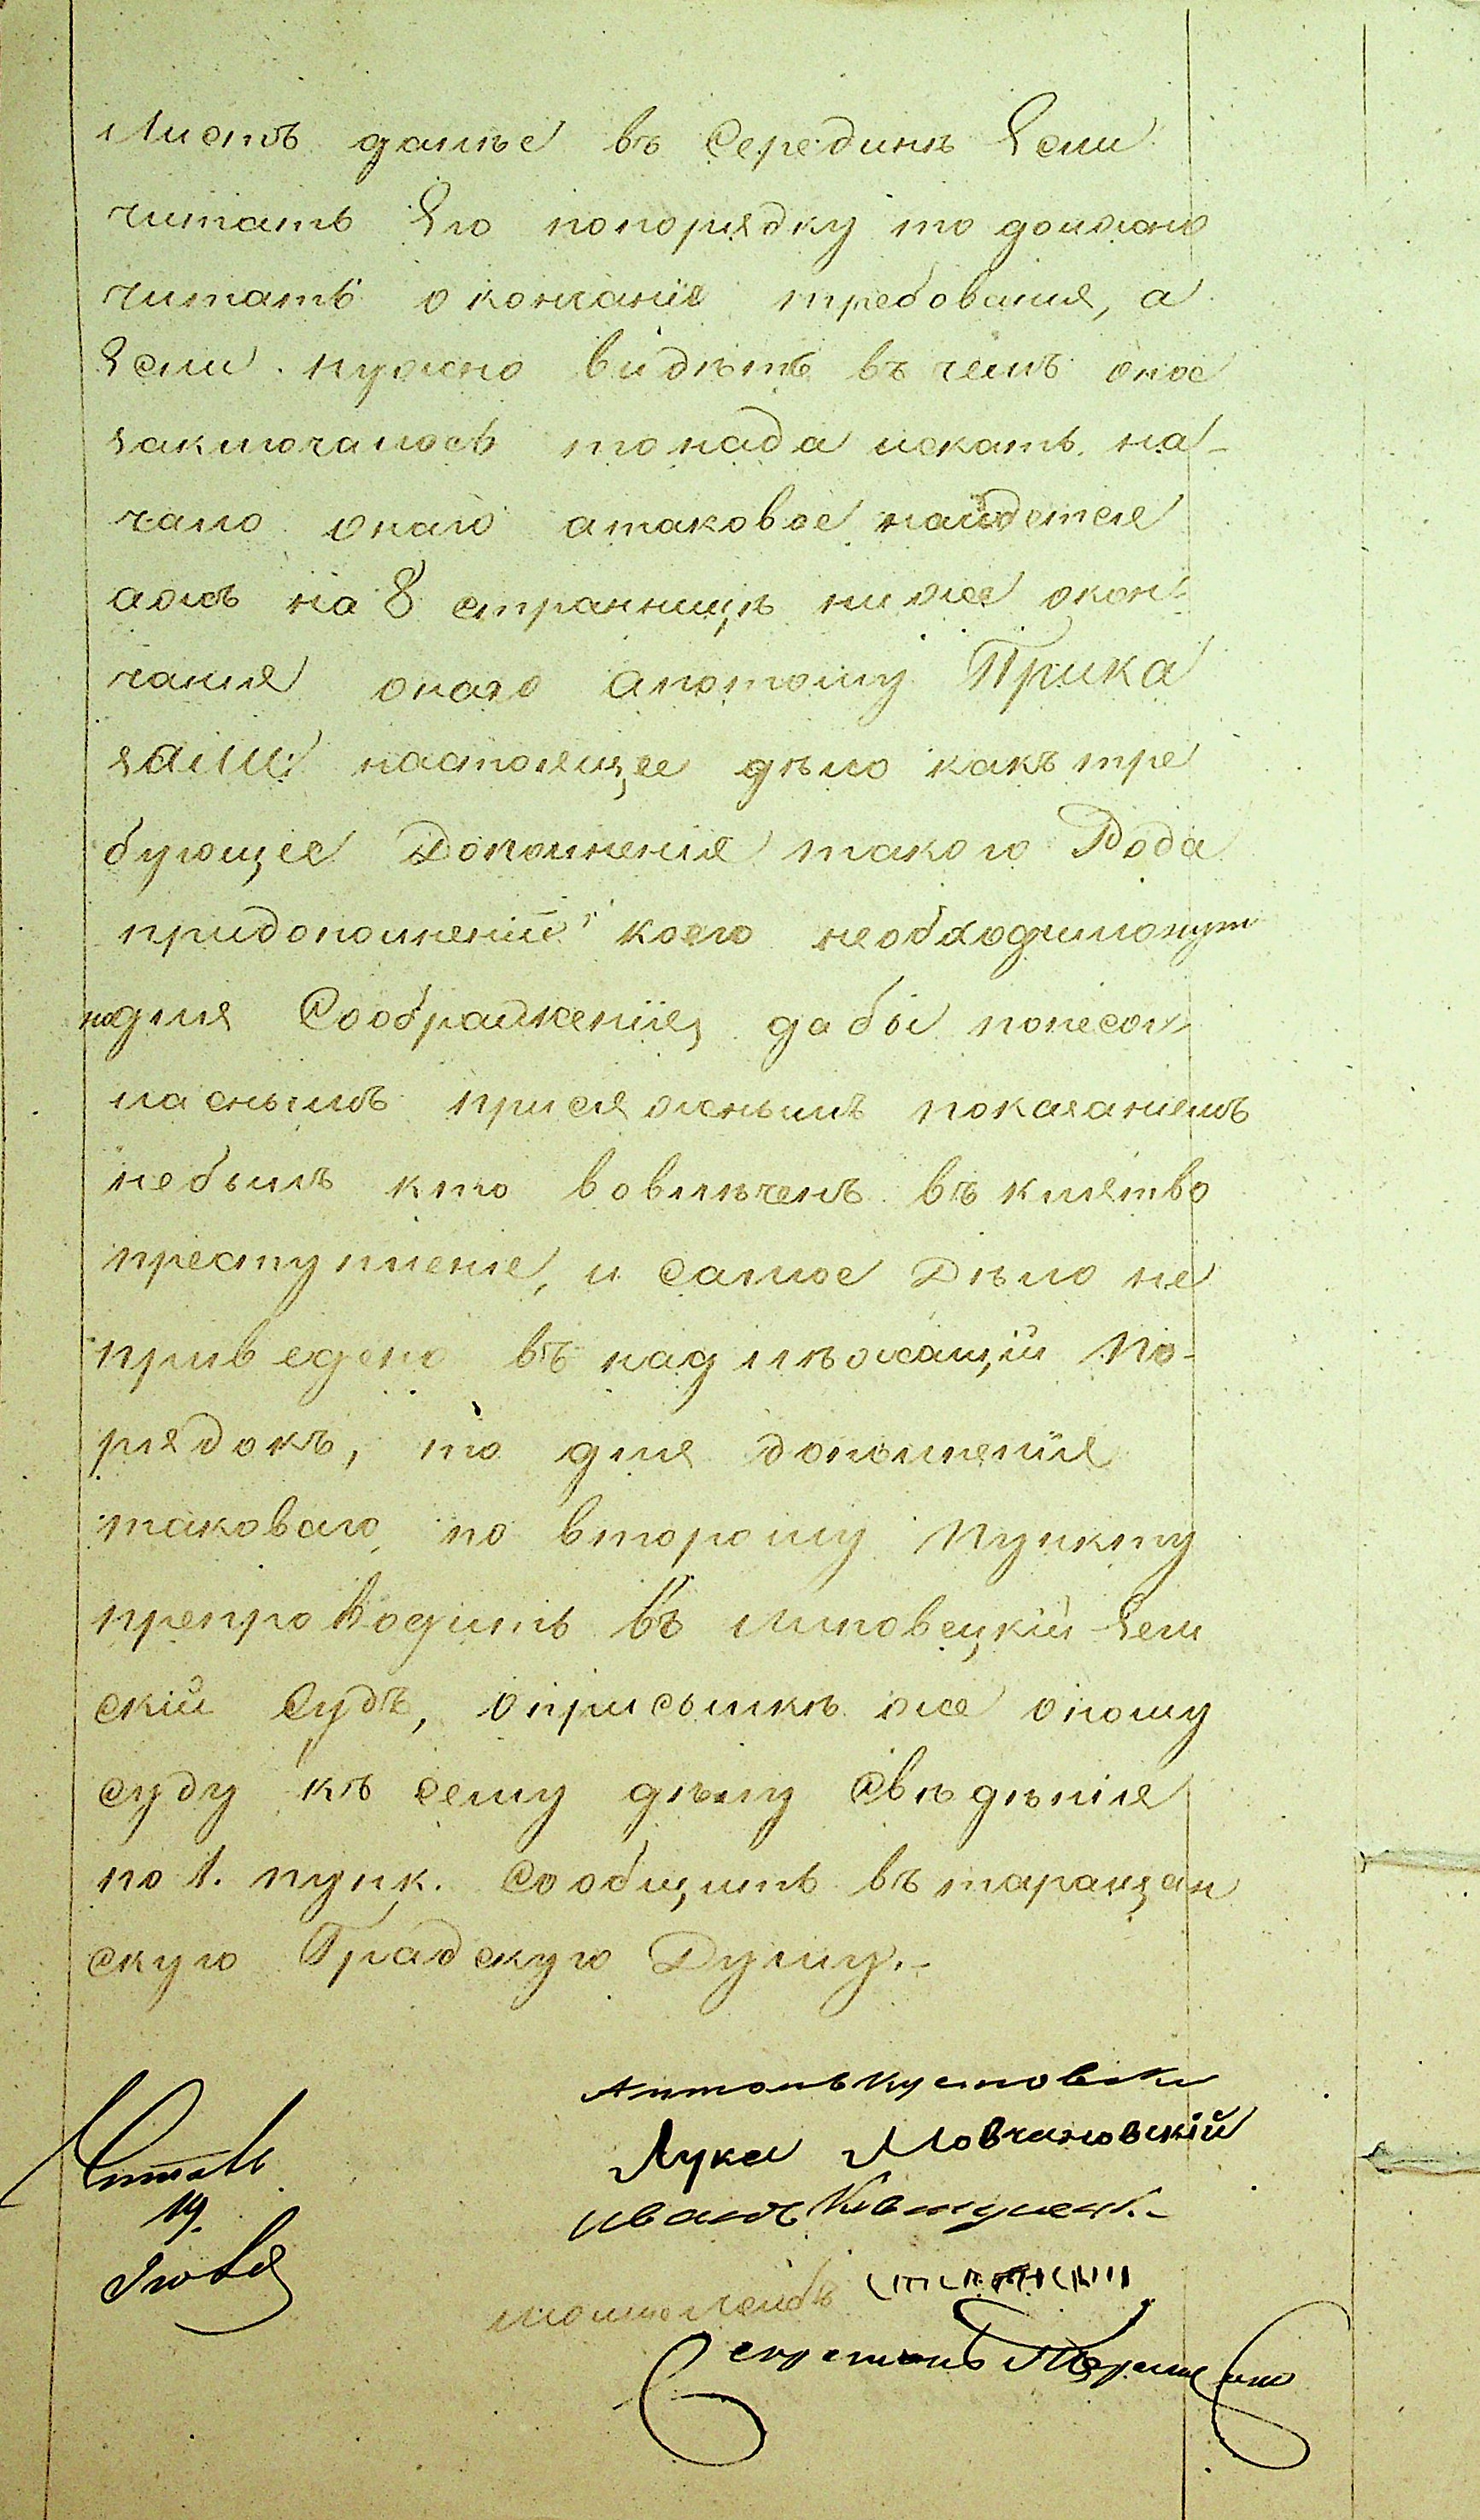 Листъ далѣе въ серединѣ Если
читать Его попорядку то должно
читать окончанїе требованїя, а
Если нужно видѣть въ чемъ оное
заключалось то нада искать на-
чало онаго атаковое найдется
ажъ на 8 странницѣ ниже окон-
чания онаго апотому Прика
зали: настоящее дѣло какъ тре
бующее Дополненія такого Рода
придополненіи коего необходимонуж
но для Соображенїя, дабы понесог-
ласнымъ присяжнымъ показаніемъ
небылъ кто вовлѣченъ въ клятво
преступленіе, и самое Дѣло не
приведено въ надлѣжащій по-
рядокъ, то для дополненїя
таковаго, по второму Пункту
препроводить въ Липовецкій Зем
скій Судъ, оприсылкѣ же оному
суду къ сему дѣлу свѣдѣнія
по 1. пунк. сообщить въ таращан
скую Градскую Думу.-
Антонъ Кустовски
Лука Мовчановскій
Иванъ
Читать
19.
Іюля
Секретарь